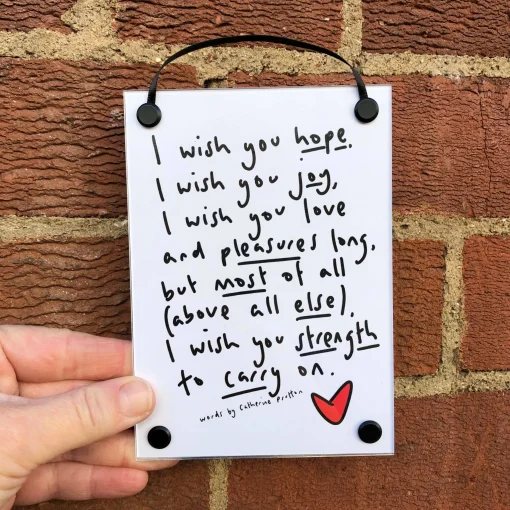 I wish you hope.
I wish you joy,
I wish you love
and pleasures long,
but most of all
(above all else),
I wish you strength
to carry on.
words by Catherine Prutton